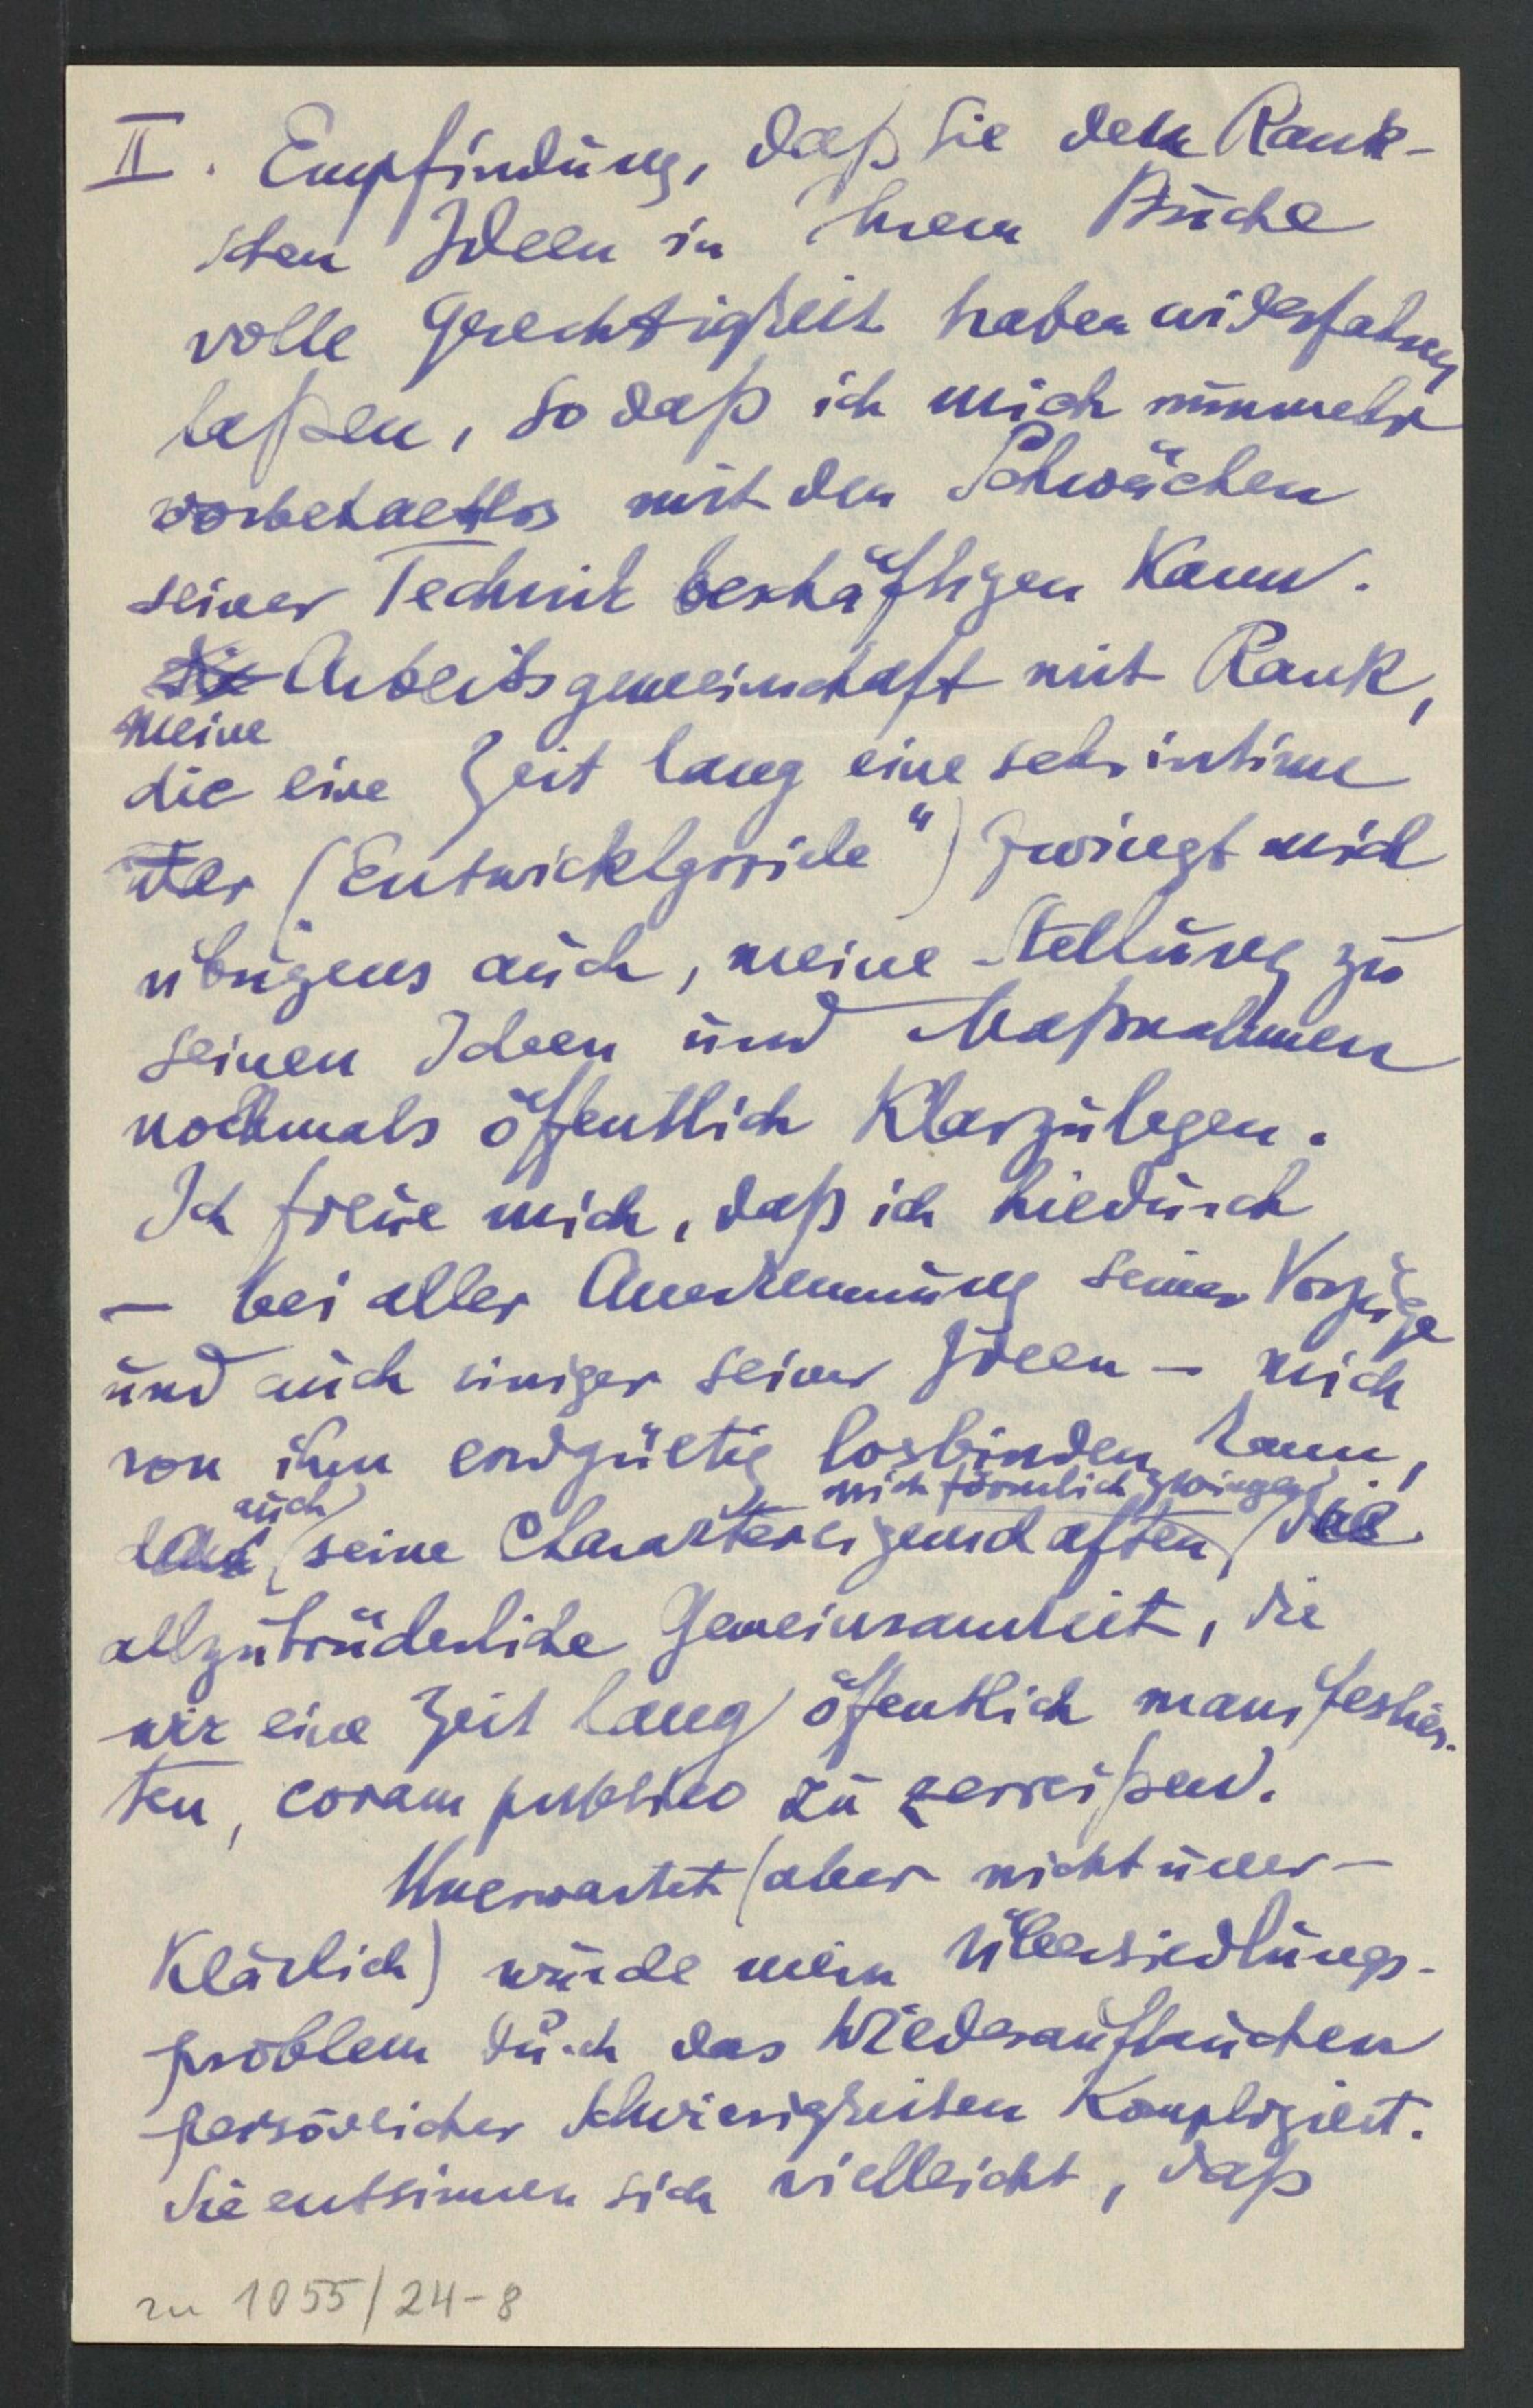 II. Empfindung, daß Sie den Rank-
schen Ideen in Ihrem Buche
volle Gerechtigkeit haben widerfahren
laßen, so daß ich mich nunmehr
vorbehaltlos mit den Schwächen
seiner Technik beschäftigen kann.
Die Arbeitsgemeinschaft mit Rank,
meine
die eine Zeit lang eine sehr intime
war (Entwicklgsziele") zwingt mich
übrigens auch, meine Stellung zu
seinen Ideen und Maßnahmen
nochmals öffentlich klarzulegen.
Ich freue mich, daß ich hiedurch
– bei aller Anerkennung seiner Vorzüge
und auch einiger seiner Ideen – mich
von ihm endgültig losbinden kann,
auch mich förmlich zwingen
da seine Charaktereigenschaften, die
allzubrüderliche Gemeinsamkeit, die
wir eine Zeit lang öffentlich manifestier-
ten, coram publico zu zerreißen.
Unerwartet (aber nicht uner-
klärlich) wurde mein Übersiedlungs-
problem durch das Wiederauftauchen
persönlicher Schwierigkeiten kompliziert.
Sie entsinnen sich vielleicht, daß
zu 1055/24-8